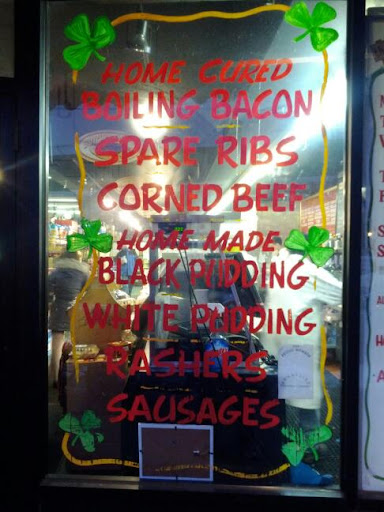 HOME CURED
BOILING BACON
SPARE RIBS
CORNED BEEF
HOME MADE
BLACK PUDDING
WHITE PUDDING
RASHERS
SAUSAGES